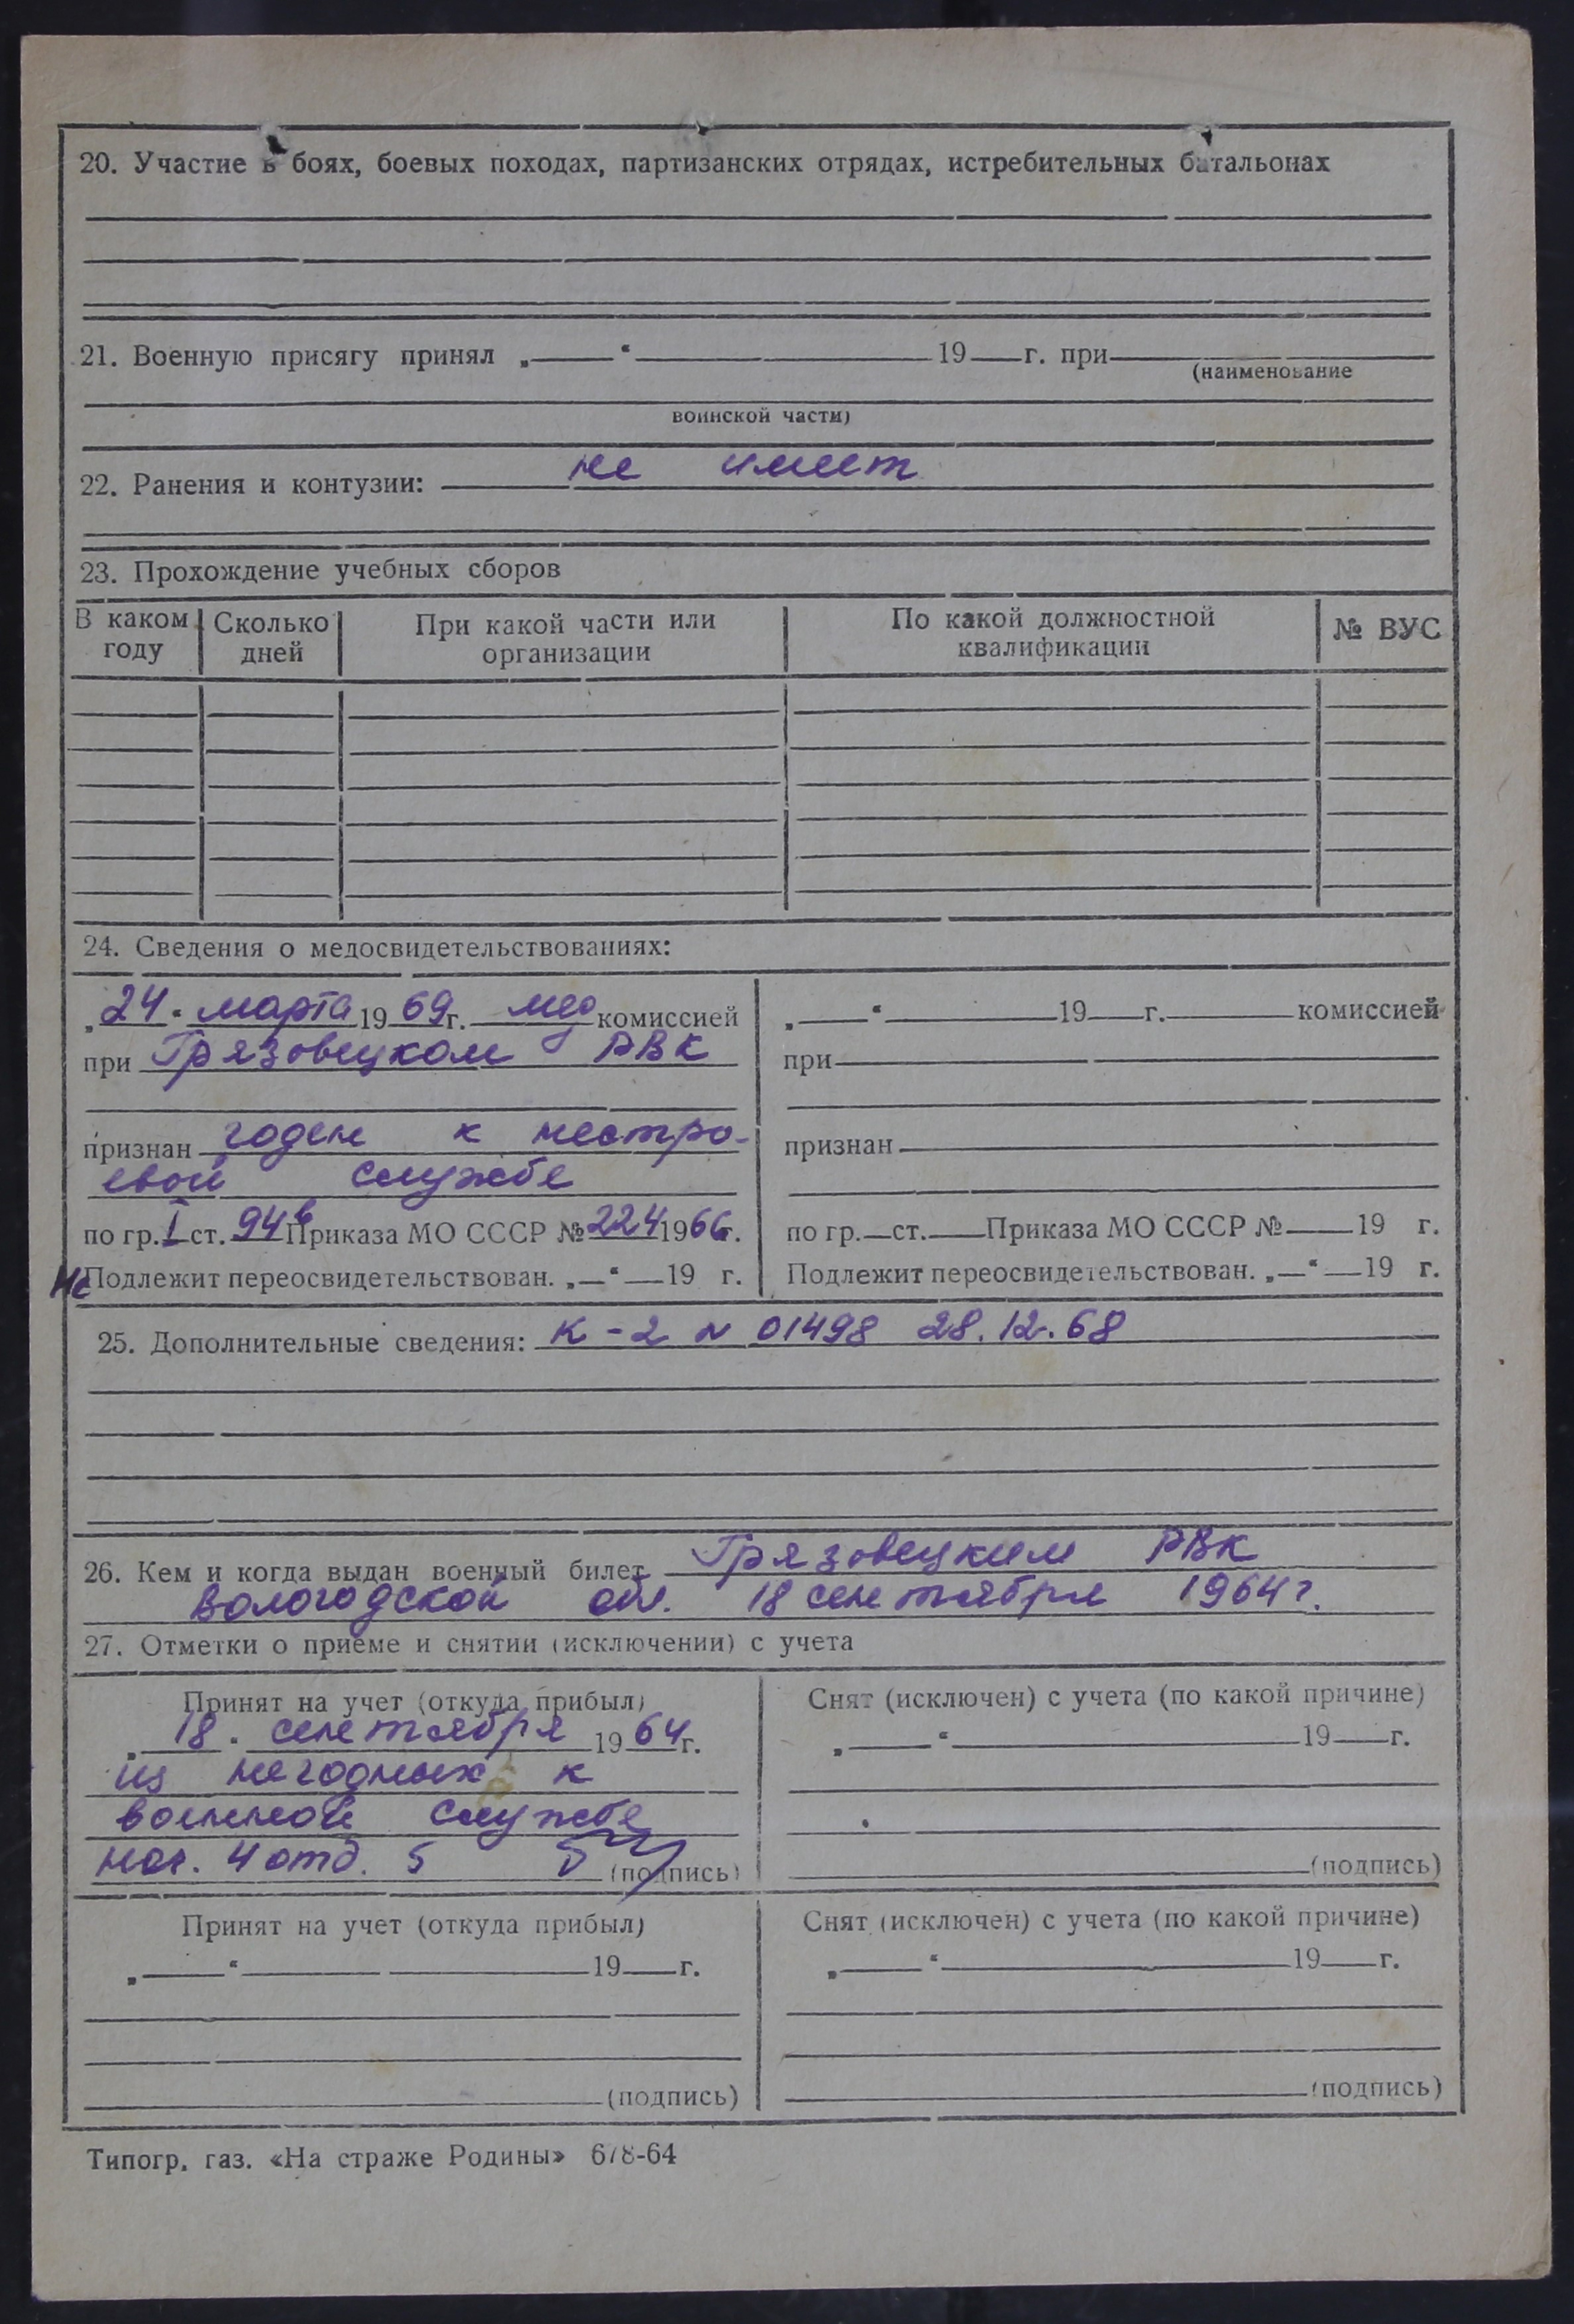 20. Участие в боях, боевых походах, партизанских отрядах, истребительных батальонах
21. Военную присягу принял „ “ 19 г. при
(наименование
воинской части)
22. Ранения и контузии: не имеет
23. Прохождение учебных сборов
В каком году
Сколько дней
При какой части или организации
По какой должностной квалификации
№ ВУС
24. Сведения о медосвидетельствованиях:
„24“ марта 1969г. мед комиссией
при Грязовецком РВК
признан годен к нестро-
евой службе
по гр. I ст. 94в Приказа МО СССР № 224 1966г.
Не Подлежит переосвидетельствован. „ “ 19 г.
„ “ 19 г. комиссией
при
признан
по гр. ст. Приказа МО СССР № 19 г.
Подлежит переосвидетельствован. „ “ 19 г.
25. Дополнительные сведения: К-2 N 01498 28.12.68
26. Кем и когда выдан военный билет Грязовецким РВК
Вологодской обл. 18 сентября 1964г.
27. Отметки о приеме и снятии (исключении) с учета
Принят на учет (откуда прибыл)
„18“ сентября 1964г.
из негодных к
военной службе
нач. 4 отд. (подпись)
Снят (исключен) с учета (по какой причине)
„ “ 19 г.
(подпись)
Принят на учет (откуда прибыл)
„ “ 19 г.
(подпись)
Снят (исключен) с учета (по какой причине)
„ “ 19 г.
(подпись)
Типогр. газ. «На страже Родины» 678-64